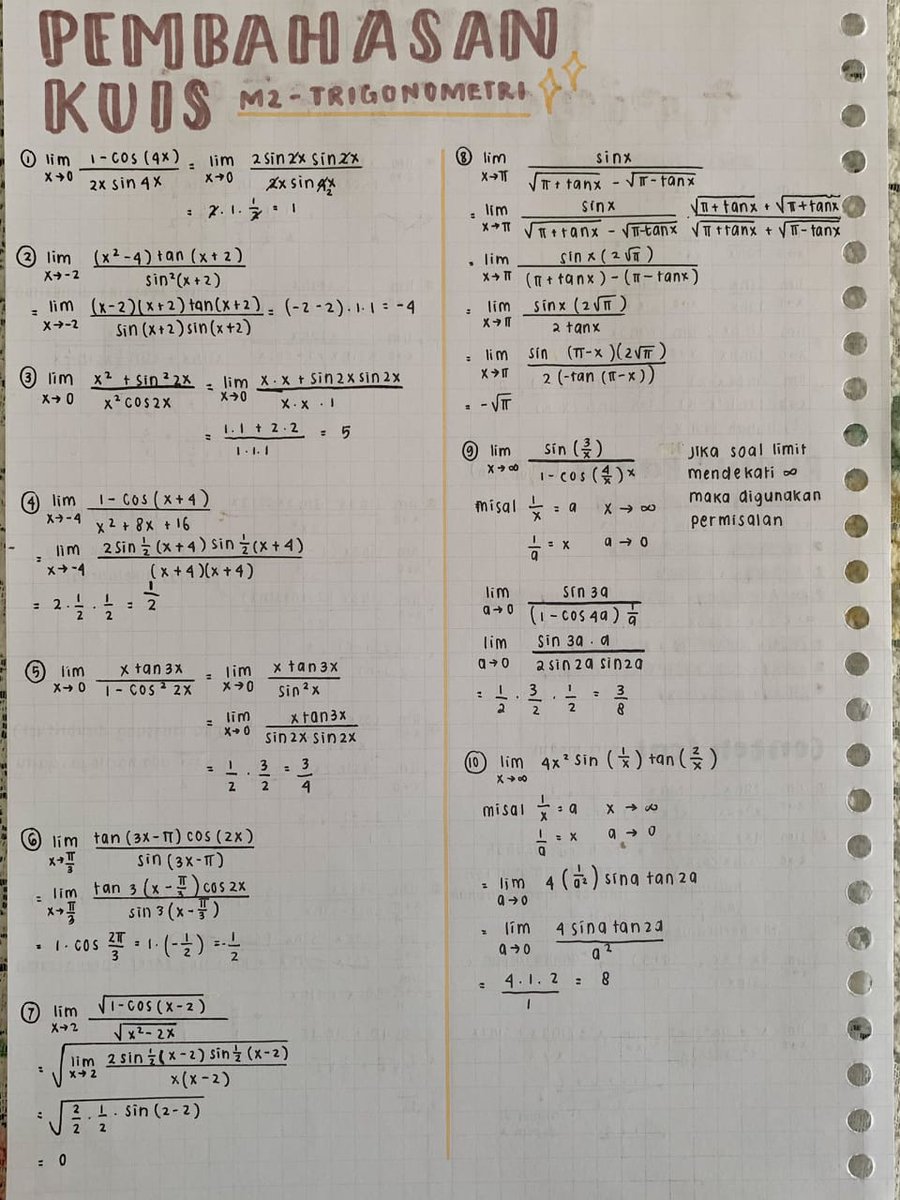 PEMBAHASAN
KUIS M2 - TRIGONOMETRI
① lim x→0 (1 - cos (4x))/(2x sin 4x) = lim x→0 (2 sin 2x sin 2x)/(2x sin 4x 2)
= 2 . 1 . 1/2 = 1
② lim x→-2 ((x² - 4) tan (x + 2))/(sin² (x + 2))
= lim x→-2 ((x-2)(x+2) tan(x+2))/(sin (x+2) sin (x+2)) = (-2 - 2) . 1 . 1 = -4
③ lim x→0 (x² + sin² 2x)/(x² cos 2x) = lim x→0 (x . x + sin 2x sin 2x)/(x . x . 1)
= (1 . 1 + 2 . 2)/(1 . 1 . 1) = 5
④ lim x→-4 (1 - cos (x + 4))/(x² + 8x + 16)
= lim x→-4 (2 sin 1/2 (x + 4) sin 1/2 (x + 4))/((x + 4)(x + 4))
= 2 . 1/2 . 1/2 = 1/2
⑤ lim x→0 (x tan 3x)/(1 - cos² 2x) = lim x→0 (x tan 3x)/(sin² x)
= lim x→0 (x tan 3x)/(sin 2x sin 2x)
= 1/2 . 3/2 = 3/4
⑥ lim x→π/3 (tan (3x - π) cos (2x))/(sin (3x - π))
= lim x→π/3 (tan 3 (x - π/3) cos 2x)/(sin 3 (x - π/3))
= 1 . cos 2π/3 = 1 . (-1/2) = -1/2
⑦ lim x→2 √(1 - cos (x - 2))/√(x² - 2x)
= √(lim x→2 (2 sin 1/2 (x - 2) sin 1/2 (x - 2))/(x (x - 2)))
= √(2/2 . 1/2 . sin (2 - 2))
= 0
⑧ lim x→π sin x/(√(π + tan x) - √(π - tan x))
= lim x→π sin x/(√(π + tan x) - √(π - tan x)) . (√(π + tan x) + √(π + tan x))/(√(π + tan x) + √(π - tan x))
= lim x→π (sin x (2√π))/((π + tan x) - (π - tan x))
= lim x→π (sin x (2√π))/(2 tan x)
= lim x→π (sin (π - x)(2√π))/(2 (-tan (π - x)))
= -√π
⑨ lim x→∞ sin (3/x)/(1 - cos (4/x) x)
misal 1/x = a x → ∞
1/a = x a → 0
Jika soal limit
mendekati ∞
maka digunakan
permisalan
lim a→0 sin 3a/((1 - cos 4a) 1/a)
lim a→0 (sin 3a . a)/(2 sin 2a sin 2a)
= 1/2 . 3/2 . 1/2 = 3/8
⑩ lim x→∞ 4x² sin (1/x) tan (2/x)
misal 1/x = a x → ∞
1/a = x a → 0
= lim a→0 4 (1/a²) sin a tan 2a
= lim a→0 (4 sin a tan 2a)/a²
= (4 . 1 . 2)/1 = 8